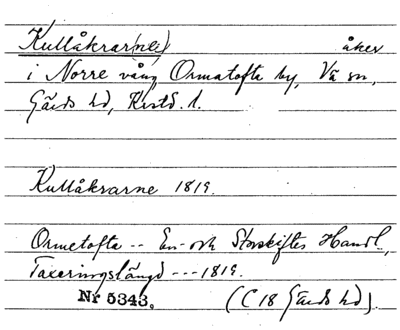 Kullåkrar(ne) åker
i Norre vång Ormatofta by, Vä sn,
Gärds hd, Kristd. l.
Kullåkrarne 1819.
Ormetofta -- En- och Storskiftes Handl.,
Taxeringslängd --- 1819.
Nr 5343. (C 18 Gärds hd).